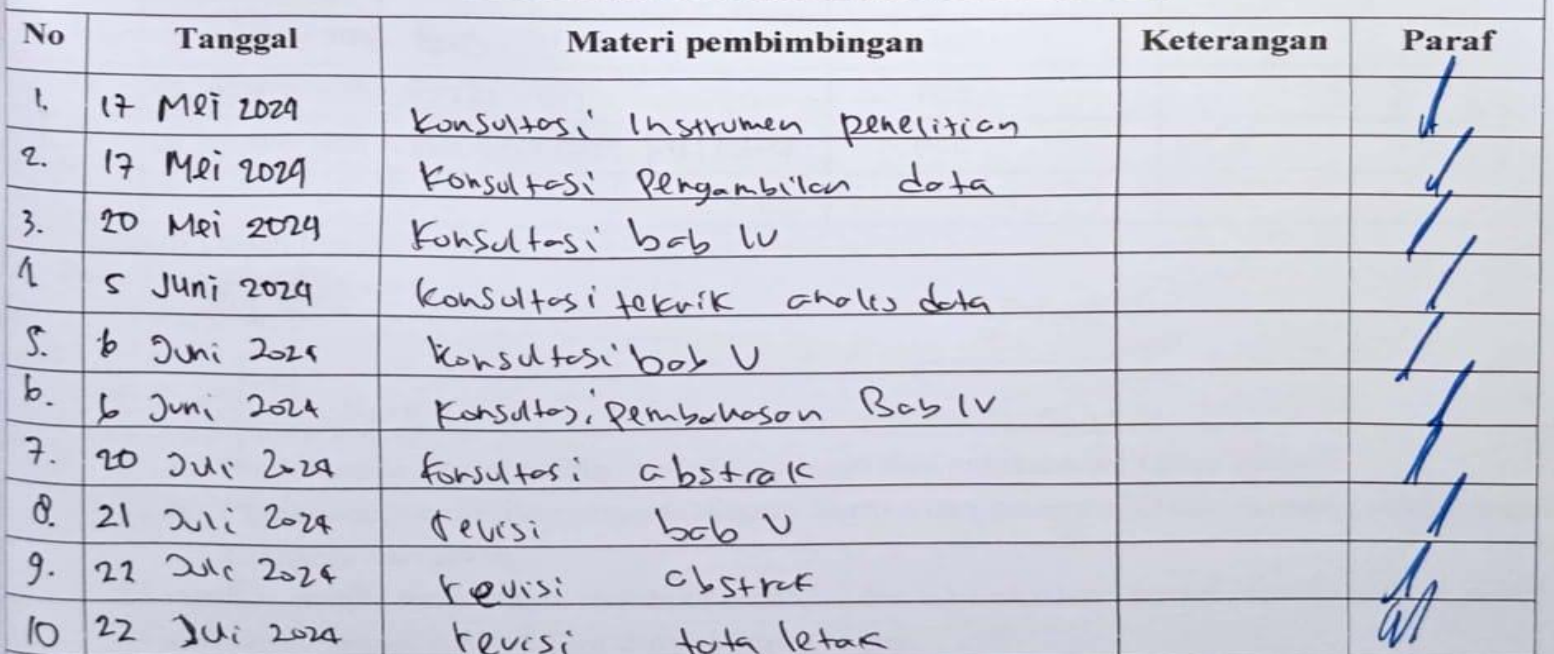 No Tanggal Materi pembimbingan Keterangan Paraf
1. 17 Mei 2024 Konsultasi Instrumen penelitian
2. 17 Mei 2024 Konsultasi Pengambilan data
3. 20 Mei 2024 Konsultasi bab IV
4 5 Juni 2024 Konsultasi teknik analis data
5. 6 Juni 2024 Konsultasi bab V
6. 6 Juni 2024 Konsultasi Pembahasan Bab IV
7. 20 Juli 2024 Konsultasi abstrak
8. 21 Juli 2024 revisi bab V
9. 22 Juli 2024 revisi abstrak
10 22 Juli 2024 revisi tata letak